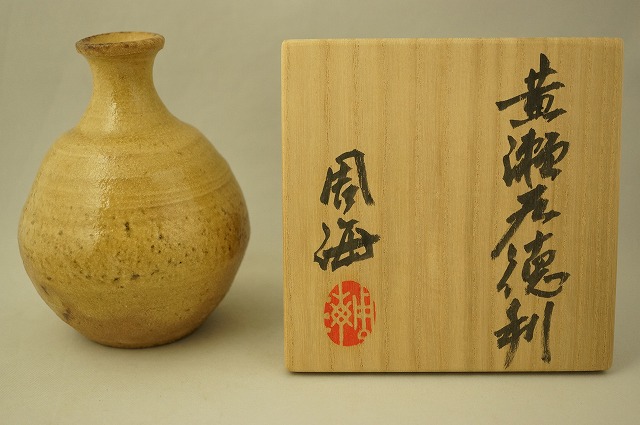 黄瀬戸徳利
周海